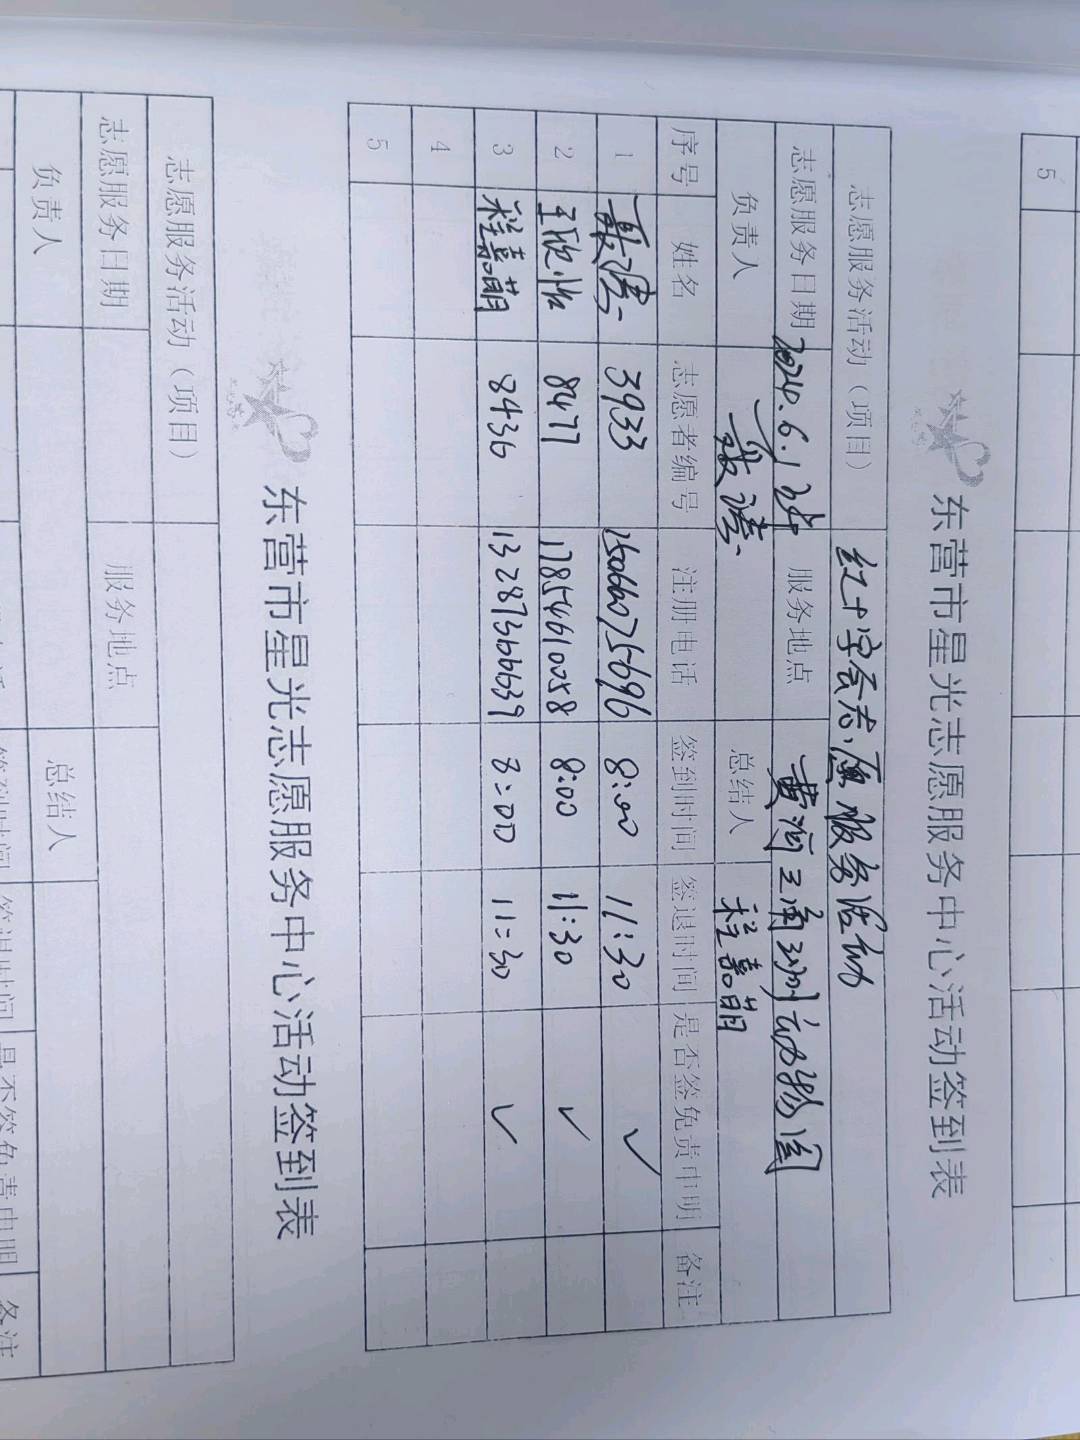 5
东营市星光志愿服务中心活动签到表
志愿服务活动（项目） 红十字会志愿服务活动
志愿服务日期 2024.6.1 服务地点 黄河三角洲动物园
负责人 总结人 程嘉萌
序号 姓名 志愿者编号 注册电话 签到时间 签退时间 是否签免责申明 备注
1 3933 15066075696 8:00 11:30 ✓
2 王欣怡 8477 17854610058 8:00 11:30 ✓
3 程嘉萌 8436 8:00 11:30 ✓
4
5
东营市星光志愿服务中心活动签到表
志愿服务活动（项目）
志愿服务日期 服务地点
负责人 总结人
签到时间 签退时间 是否签免责申明 备注